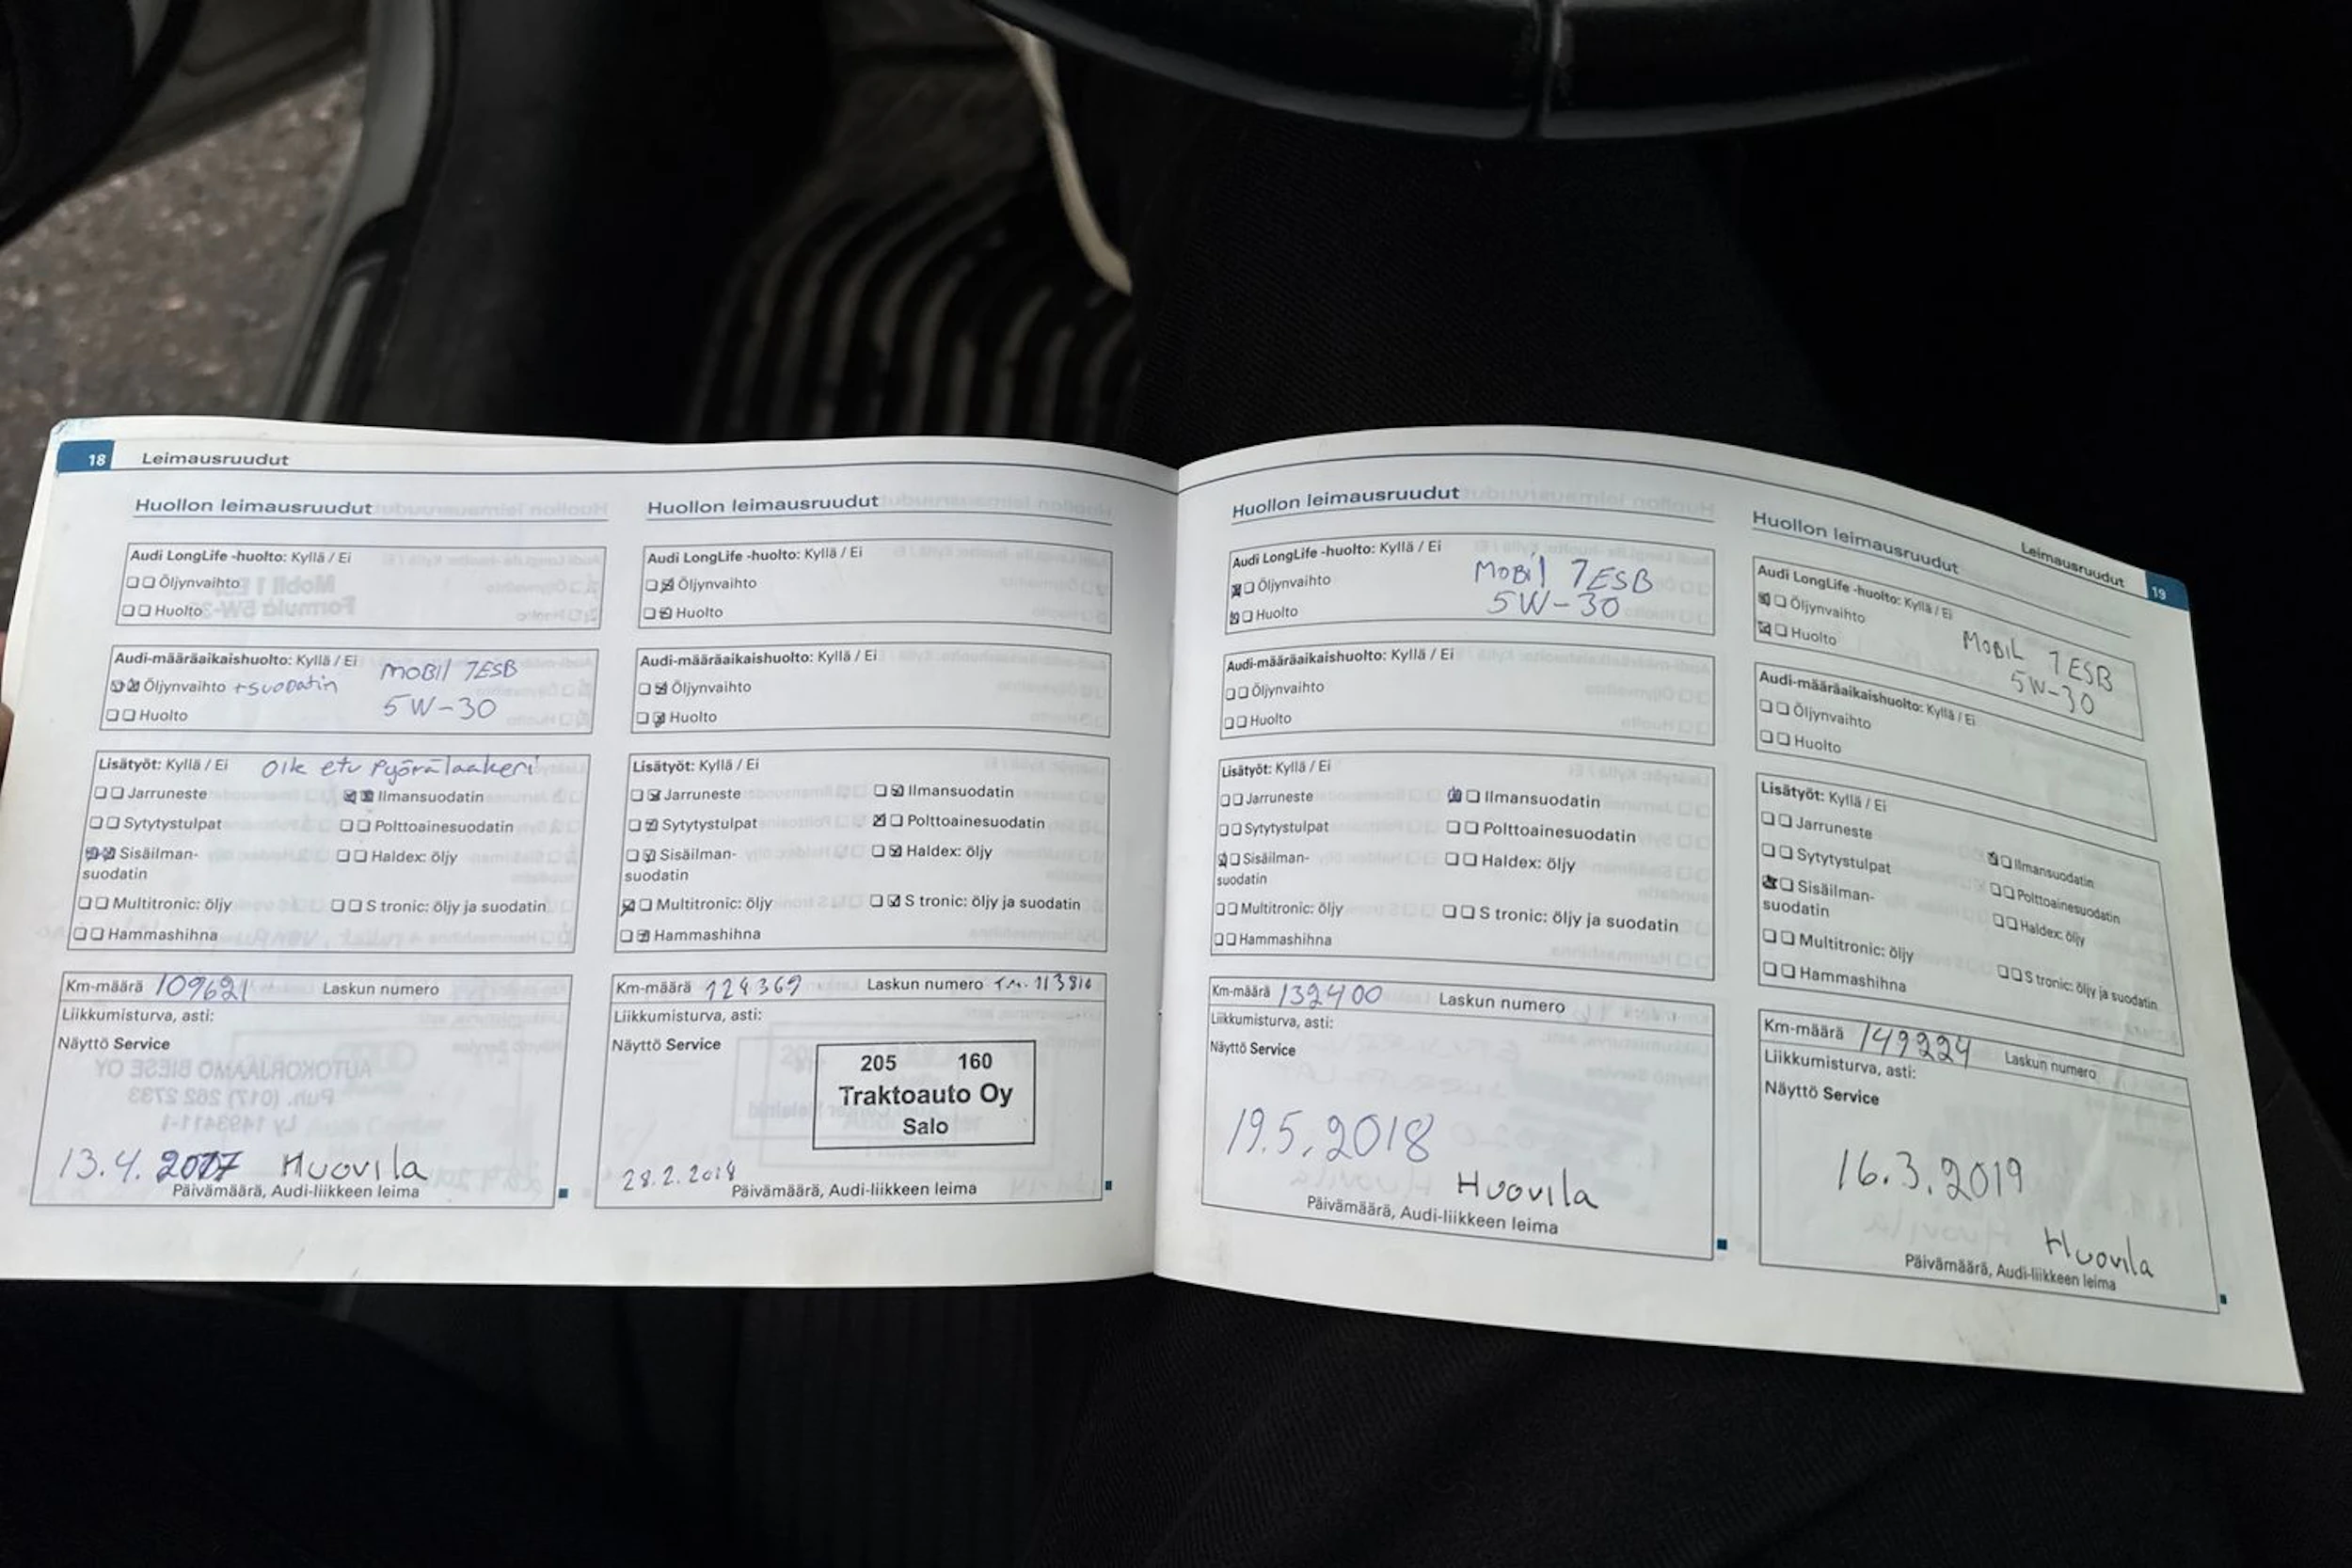 18 Leimausruudut
Huollon leimausruudut
Audi LongLife -huolto: Kyllä / Ei
Öljynvaihto
Huolto
Audi-määräaikaishuolto: Kyllä / Ei
MOBil 1ESB
Öljynvaihto +suodatin
5W-30
Huolto
Lisätyöt: Kyllä / Ei Oik etu pyörälaakeri
Jarruneste Ilmansuodatin
Sytytystulpat Polttoainesuodatin
Sisäilman- Haldex: öljy
suodatin
Multitronic: öljy S tronic: öljy ja suodatin
Hammashihna
Km-määrä 109621 Laskun numero
Liikkumisturva, asti:
Näyttö Service
13.4. 2017 Huovila
Päivämäärä, Audi-liikkeen leima
Huollon leimausruudut
Audi LongLife -huolto: Kyllä / Ei
Öljynvaihto
Huolto
Audi-määräaikaishuolto: Kyllä / Ei
Öljynvaihto
Huolto
Lisätyöt: Kyllä / Ei
Jarruneste Ilmansuodatin
Sytytystulpat Polttoainesuodatin
Sisäilman- Haldex: öljy
suodatin
Multitronic: öljy S tronic: öljy ja suodatin
Hammashihna
Km-määrä 124369 Laskun numero 113810
Liikkumisturva, asti:
Näyttö Service
205 160
Traktoauto Oy
Salo
28.2.2018
Päivämäärä, Audi-liikkeen leima
Huollon leimausruudut
Audi LongLife -huolto: Kyllä / Ei
Öljynvaihto MOBil 1ESB
Huolto 5W-30
Audi-määräaikaishuolto: Kyllä / Ei
Öljynvaihto
Huolto
Lisätyöt: Kyllä / Ei
Jarruneste Ilmansuodatin
Sytytystulpat Polttoainesuodatin
Sisäilman- Haldex: öljy
suodatin
Multitronic: öljy S tronic: öljy ja suodatin
Hammashihna
Km-määrä 132400 Laskun numero
Liikkumisturva, asti:
Näyttö Service
19.5.2018
Huovila
Päivämäärä, Audi-liikkeen leima
Leimausruudut 19
Huollon leimausruudut
Audi LongLife -huolto: Kyllä / Ei
Öljynvaihto
Huolto
MOBIL 1ESB
5W-30
Audi-määräaikaishuolto: Kyllä / Ei
Öljynvaihto
Huolto
Lisätyöt: Kyllä / Ei
Jarruneste Ilmansuodatin
Sytytystulpat Polttoainesuodatin
Sisäilman- Haldex: öljy
suodatin
Multitronic: öljy S tronic: öljy ja suodatin
Hammashihna
Km-määrä 149224 Laskun numero
Liikkumisturva, asti:
Näyttö Service
16.3.2019
Huovila
Päivämäärä, Audi-liikkeen leima